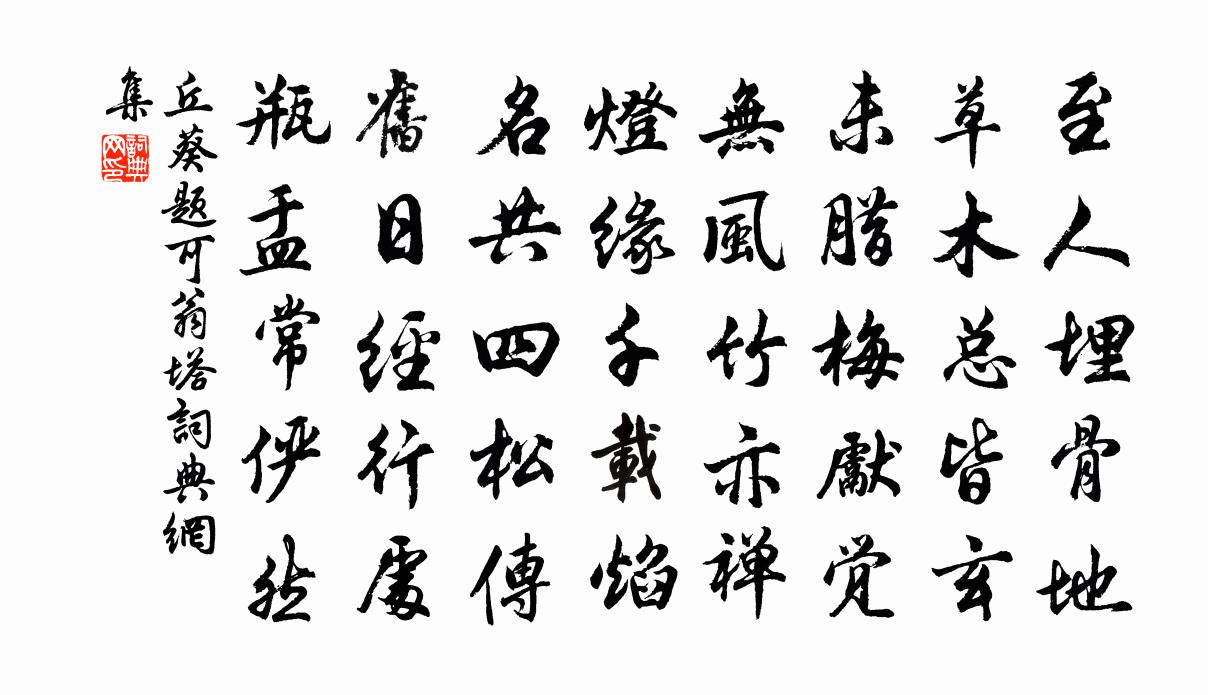 至人埋骨地
草木总皆玄
未腊梅獻觉
無風竹亦禅
燈緣千載焰
名共四松傳
舊日經行處
瓶盂常俨然
丘葵题可翁塔詞典網
集
詞典网印